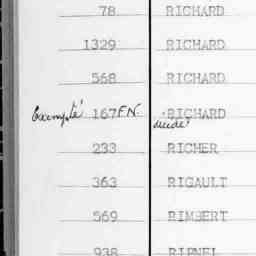 78 RICHARD
1329 RICHARD
568 RICHARD
Exempté 167 FN RICHARD
décédé
233 RICHER
363 RIGAULT
569 RIMBERT
938 RIPNEL